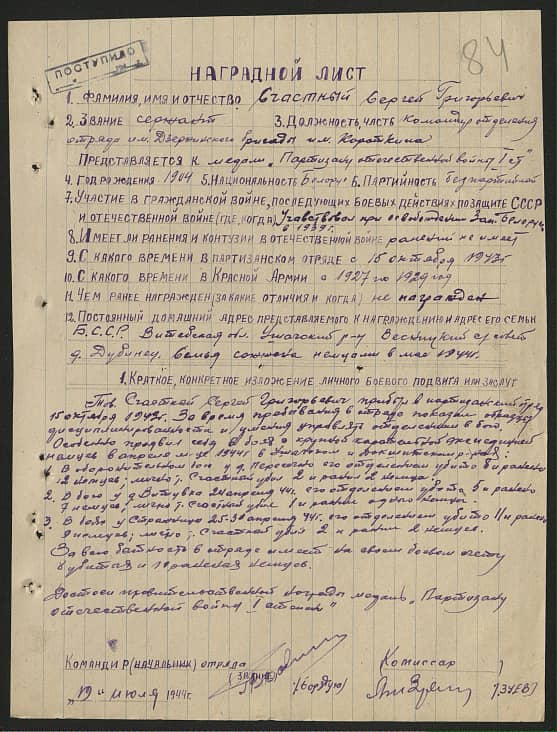 84
ПОСТУПИЛО
НАГРАДНОЙ ЛИСТ
1. ФАМИЛИЯ, ИМЯ И ОТЧЕСТВО Счастный Сергей Григорьевич
2. ЗВАНИЕ сержант 3. ДОЛЖНОСТЬ, ЧАСТЬ Командир отделения
отряда им. Дзержинского бригады им. Короткина
ПРЕДСТАВЛЯЕТСЯ К медали „Партизану отечественной войны I ст"
4. ГОД РОЖДЕНИЯ 1904 5. НАЦИОНАЛЬНОСТЬ Белорус 6. ПАРТИЙНОСТЬ беспартийный
7. УЧАСТИЕ В ГРАЖДАНСКОЙ ВОЙНЕ, ПОСЛЕДУЮЩИХ БОЕВЫХ ДЕЙСТВИЯХ ПО ЗАЩИТЕ СССР
И ОТЕЧЕСТВЕННОЙ ВОЙНЕ (ГДЕ, КОГДА) Учавствовал при освобождении Зап. Белорус.
в 1939 г.
8. ИМЕЕТ ЛИ РАНЕНИЯ И КОНТУЗИИ В ОТЕЧЕСТВЕННОЙ ВОЙНЕ ранений не имеет
9. С КАКОГО ВРЕМЕНИ В ПАРТИЗАНСКОМ ОТРЯДЕ с 15 октября 1943 г.
10. С КАКОГО ВРЕМЕНИ В КРАСНОЙ АРМИИ с 1927 по 1929 год
11. ЧЕМ РАНЕЕ НАГРАЖДЕН (ЗА КАКИЕ ОТЛИЧИЯ И КОГДА) не награжден
12. ПОСТОЯННЫЙ ДОМАШНИЙ АДРЕС ПРЕДСТАВЛЯЕМОГО К НАГРАЖДЕНИЮ И АДРЕС ЕГО СЕМЬИ
Б.С.С.Р. Витебская обл. Ушачский р-н
д. Дубинец. сожжена немцами в мае 1944 г.
1. КРАТКОЕ, КОНКРЕТНОЕ ИЗЛОЖЕНИЕ ЛИЧНОГО БОЕВОГО ПОДВИГА ИЛИ ЗАСЛУГ
Тов. Счастный Сергей Григорьевич прибыл в партизанский отряд
15 октября 1943 г. За время пребывания в отряде показал образцы
дисциплинированности и умения управлять отделением в бою.
Особенно проявил себя в боях с крупной карательной экспедицией
немцев в апреле м-це 1944 г. в Ушачском и Докшитском р-нах:
1. В оборонительном бою у д. его отделением убито 8 и ранено
12 немцев, лично т. Счастный убил 2 и ранил 2 немцев.
2. В бою у д. 24 апреля 44 г. его отделением убито 5 и ранено
7 немцев, лично т. Счастный убил 1 и ранил одного немца.
3. В бою у 25-30 апреля 44 г. его отделением убито 11 и ранено
9 немцев, лично т. Счастный убил 2 и ранил 2 немцев.
За всю бытность в отряде имеет на своем боевом счету
убитых и раненых немцев.
Достоин правительственной награды медаль „Партизану
отечественной войны I степени"
КОМАНДИР (НАЧАЛЬНИК) отряда Комиссар
(ЗВАНИЕ)
„19" июля 1944 г. (ЗУЕВ)